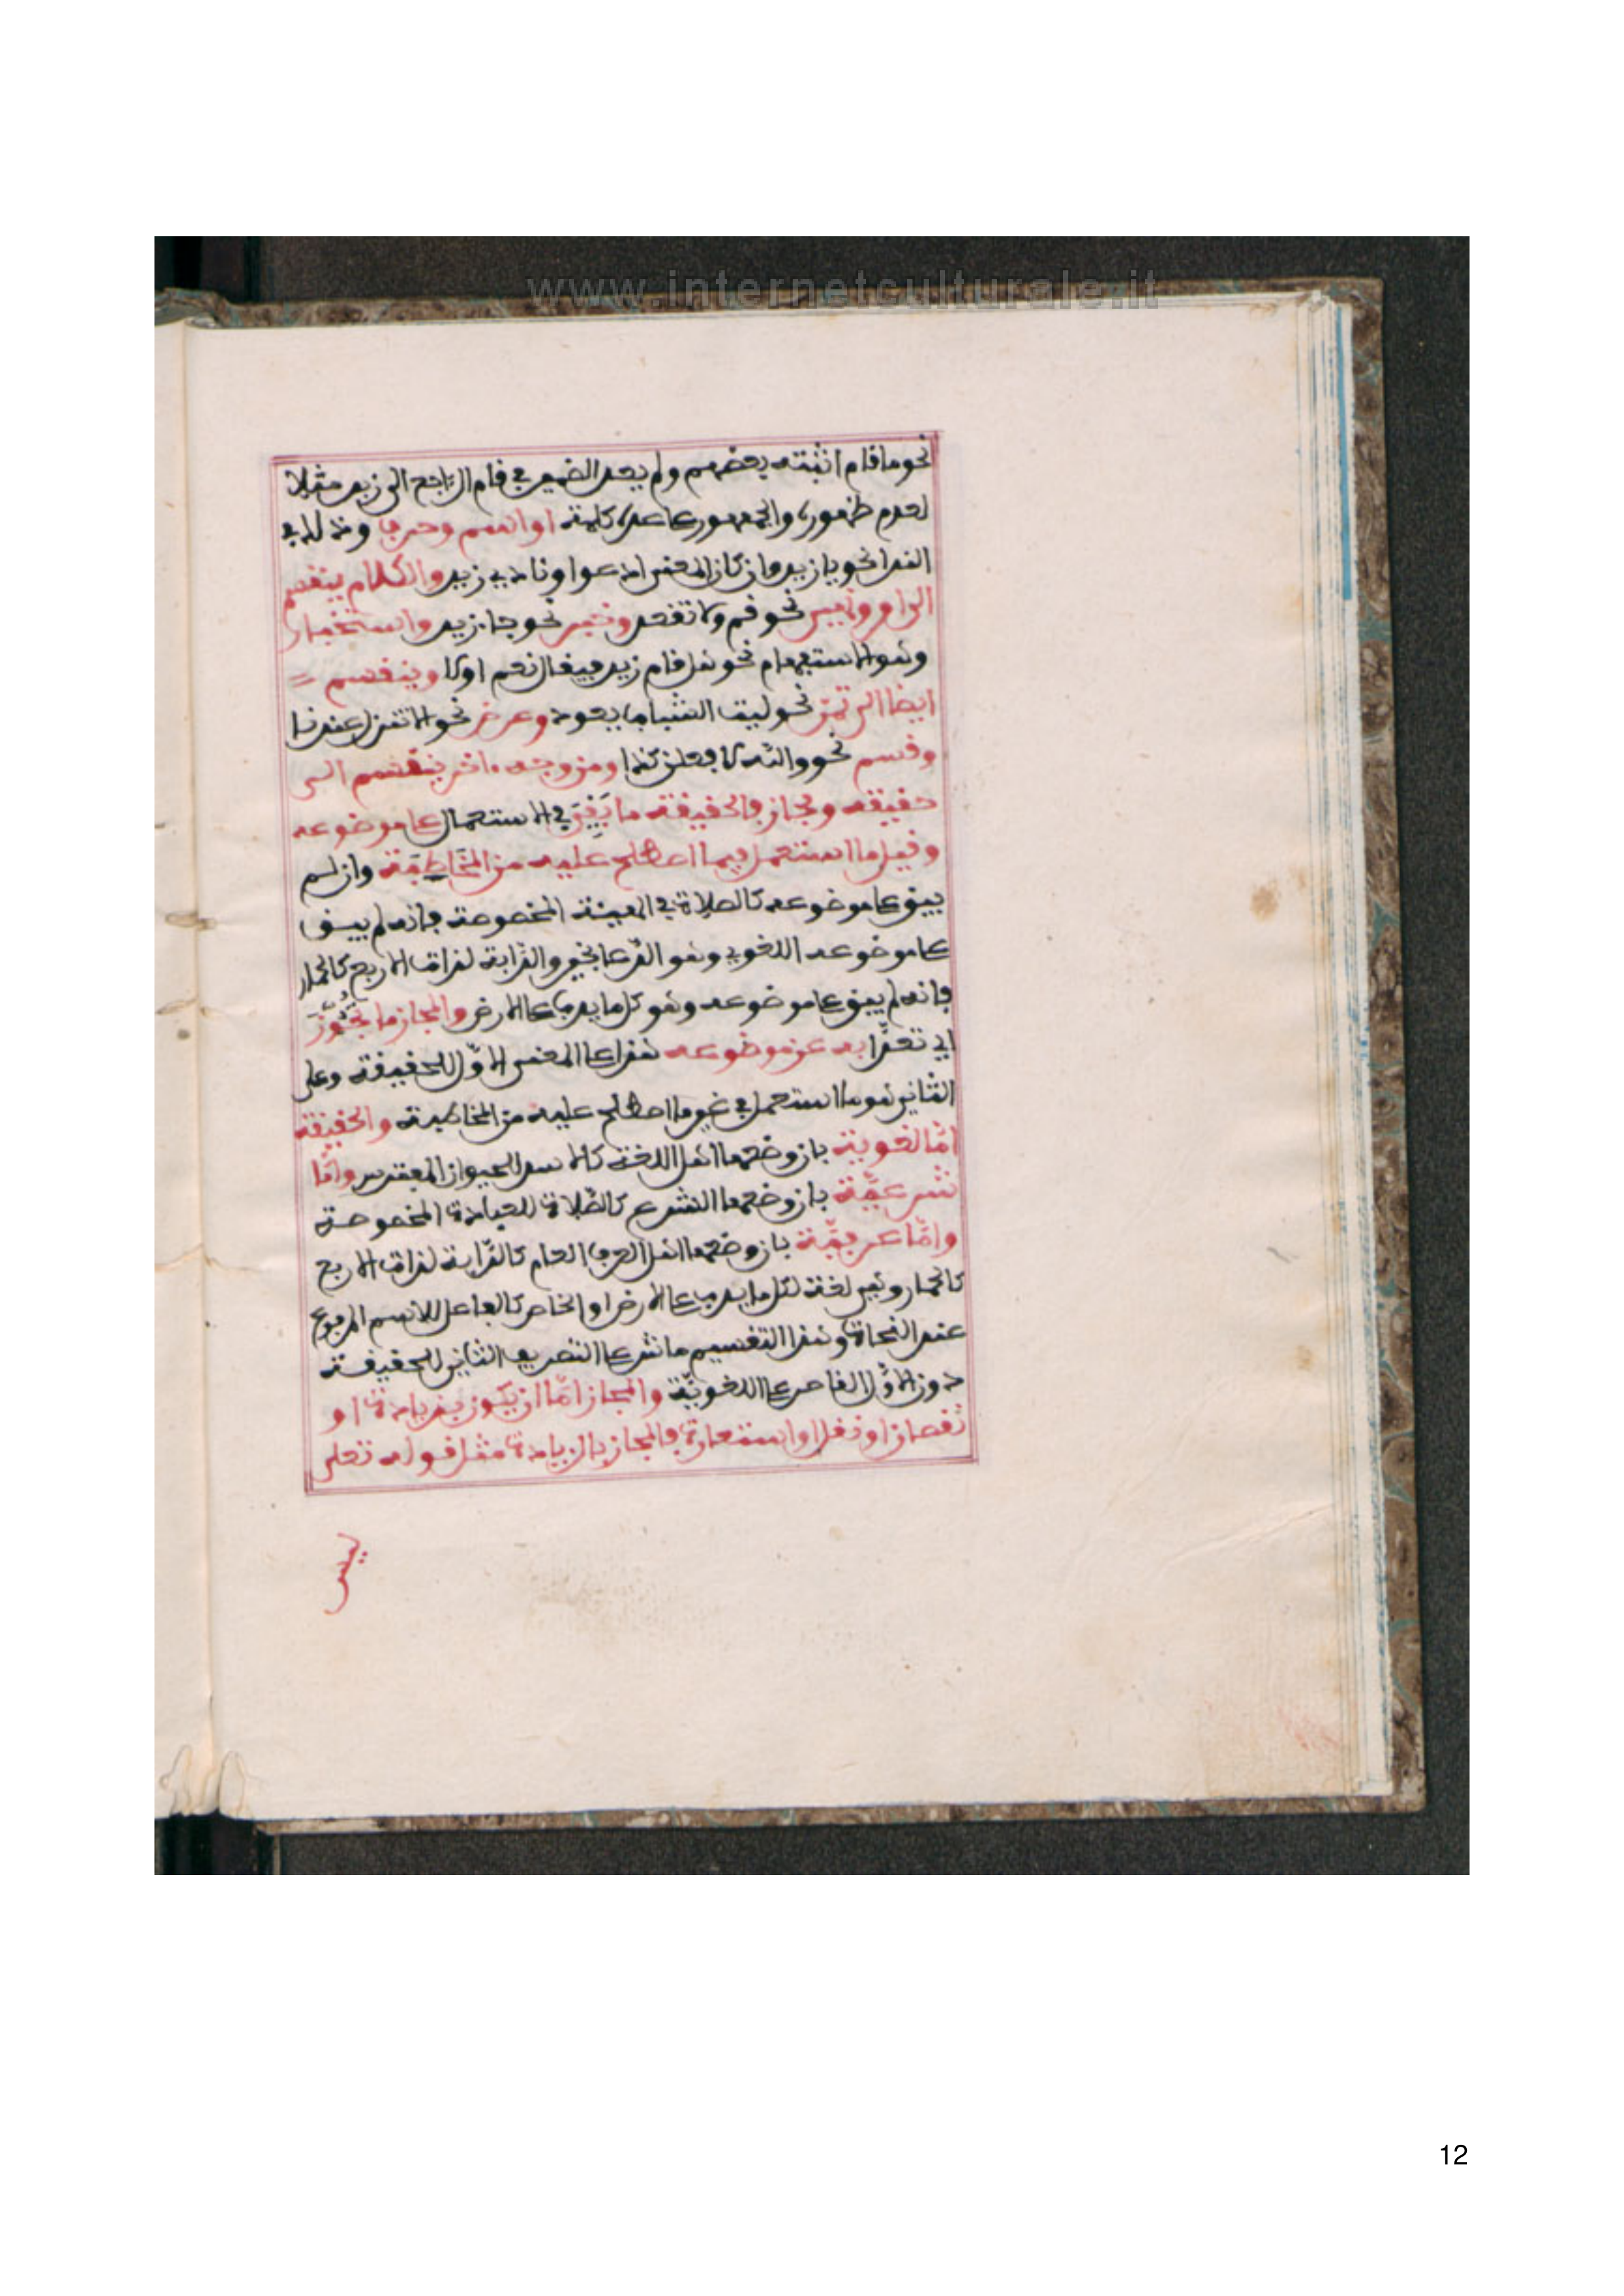 www.internetculturale.it
نحو ما قام اثبته بعضهم ولم يعد الضمير في قام الراجع الى زيد مثلا
لعدم ظهوره والجمهور على عده كلمة او اسم وحرف وذلك في
الندا نحو يا زيد وان كان المعنى ادعوا او نادي زيد والكلام ينقسم
الى امر ونهي نحو قم ولا تقعد وخبر نحو جا زيد واستخبار
وهو الاستفهام نحو هل قام زيد فيقال نعم او لا وينقسم =
ايضا الى تمن نحو ليت الشباب يعود وعرض نحو الا تنزل عندنا
وقسم نحو والله لا فعلن كذا ومن وجه ءاخر ينقسم الى
حقيقه ومجاز فالحقيقة ما بقي في الاستعمال على موضوعه
وقيل ما استعمل فيما اصطلح عليه من المخاطبة وان لم
يبق على موضوعه كالصلاة في الهيئة المخصوصة فانه لم يبق
على موضوعه اللغوي وهو الدعا بخير والدابة لذات الاربع كالحمار
فانه لم يبق على موضوعه وهو كل ما يدب على الارض والمجاز ما تجوز
اي تعدا به عن موضوعه هذا على المعنى الاول للحقيقة وعلى
الثاني هو ما استعمل في غير ما اصطلح عليه من المخاطبة والحقيقة
اما لغوية بان وضعها اهل اللغة كالاسد للحيوان المفترس واما
شرعية بان وضعها الشرع كالصلاة للعبادة المخصوصة
واما عرفية بان وضعها اهل العرف العام كالدابة لذات الاربع
كالحمار وهي لغة لكل ما يدب على الارض او الخاص كالفاعل للاسم المرفوع
عند النحاة وهذا التقسيم ماش على التعريف الثاني للحقيقة
دون الاول القاصر على اللغوية والمجاز اما ان يكون بزيادة او
نقصان او نقل او استعارة فالمجاز بالزيادة مثل قوله تعلى
ليس
12